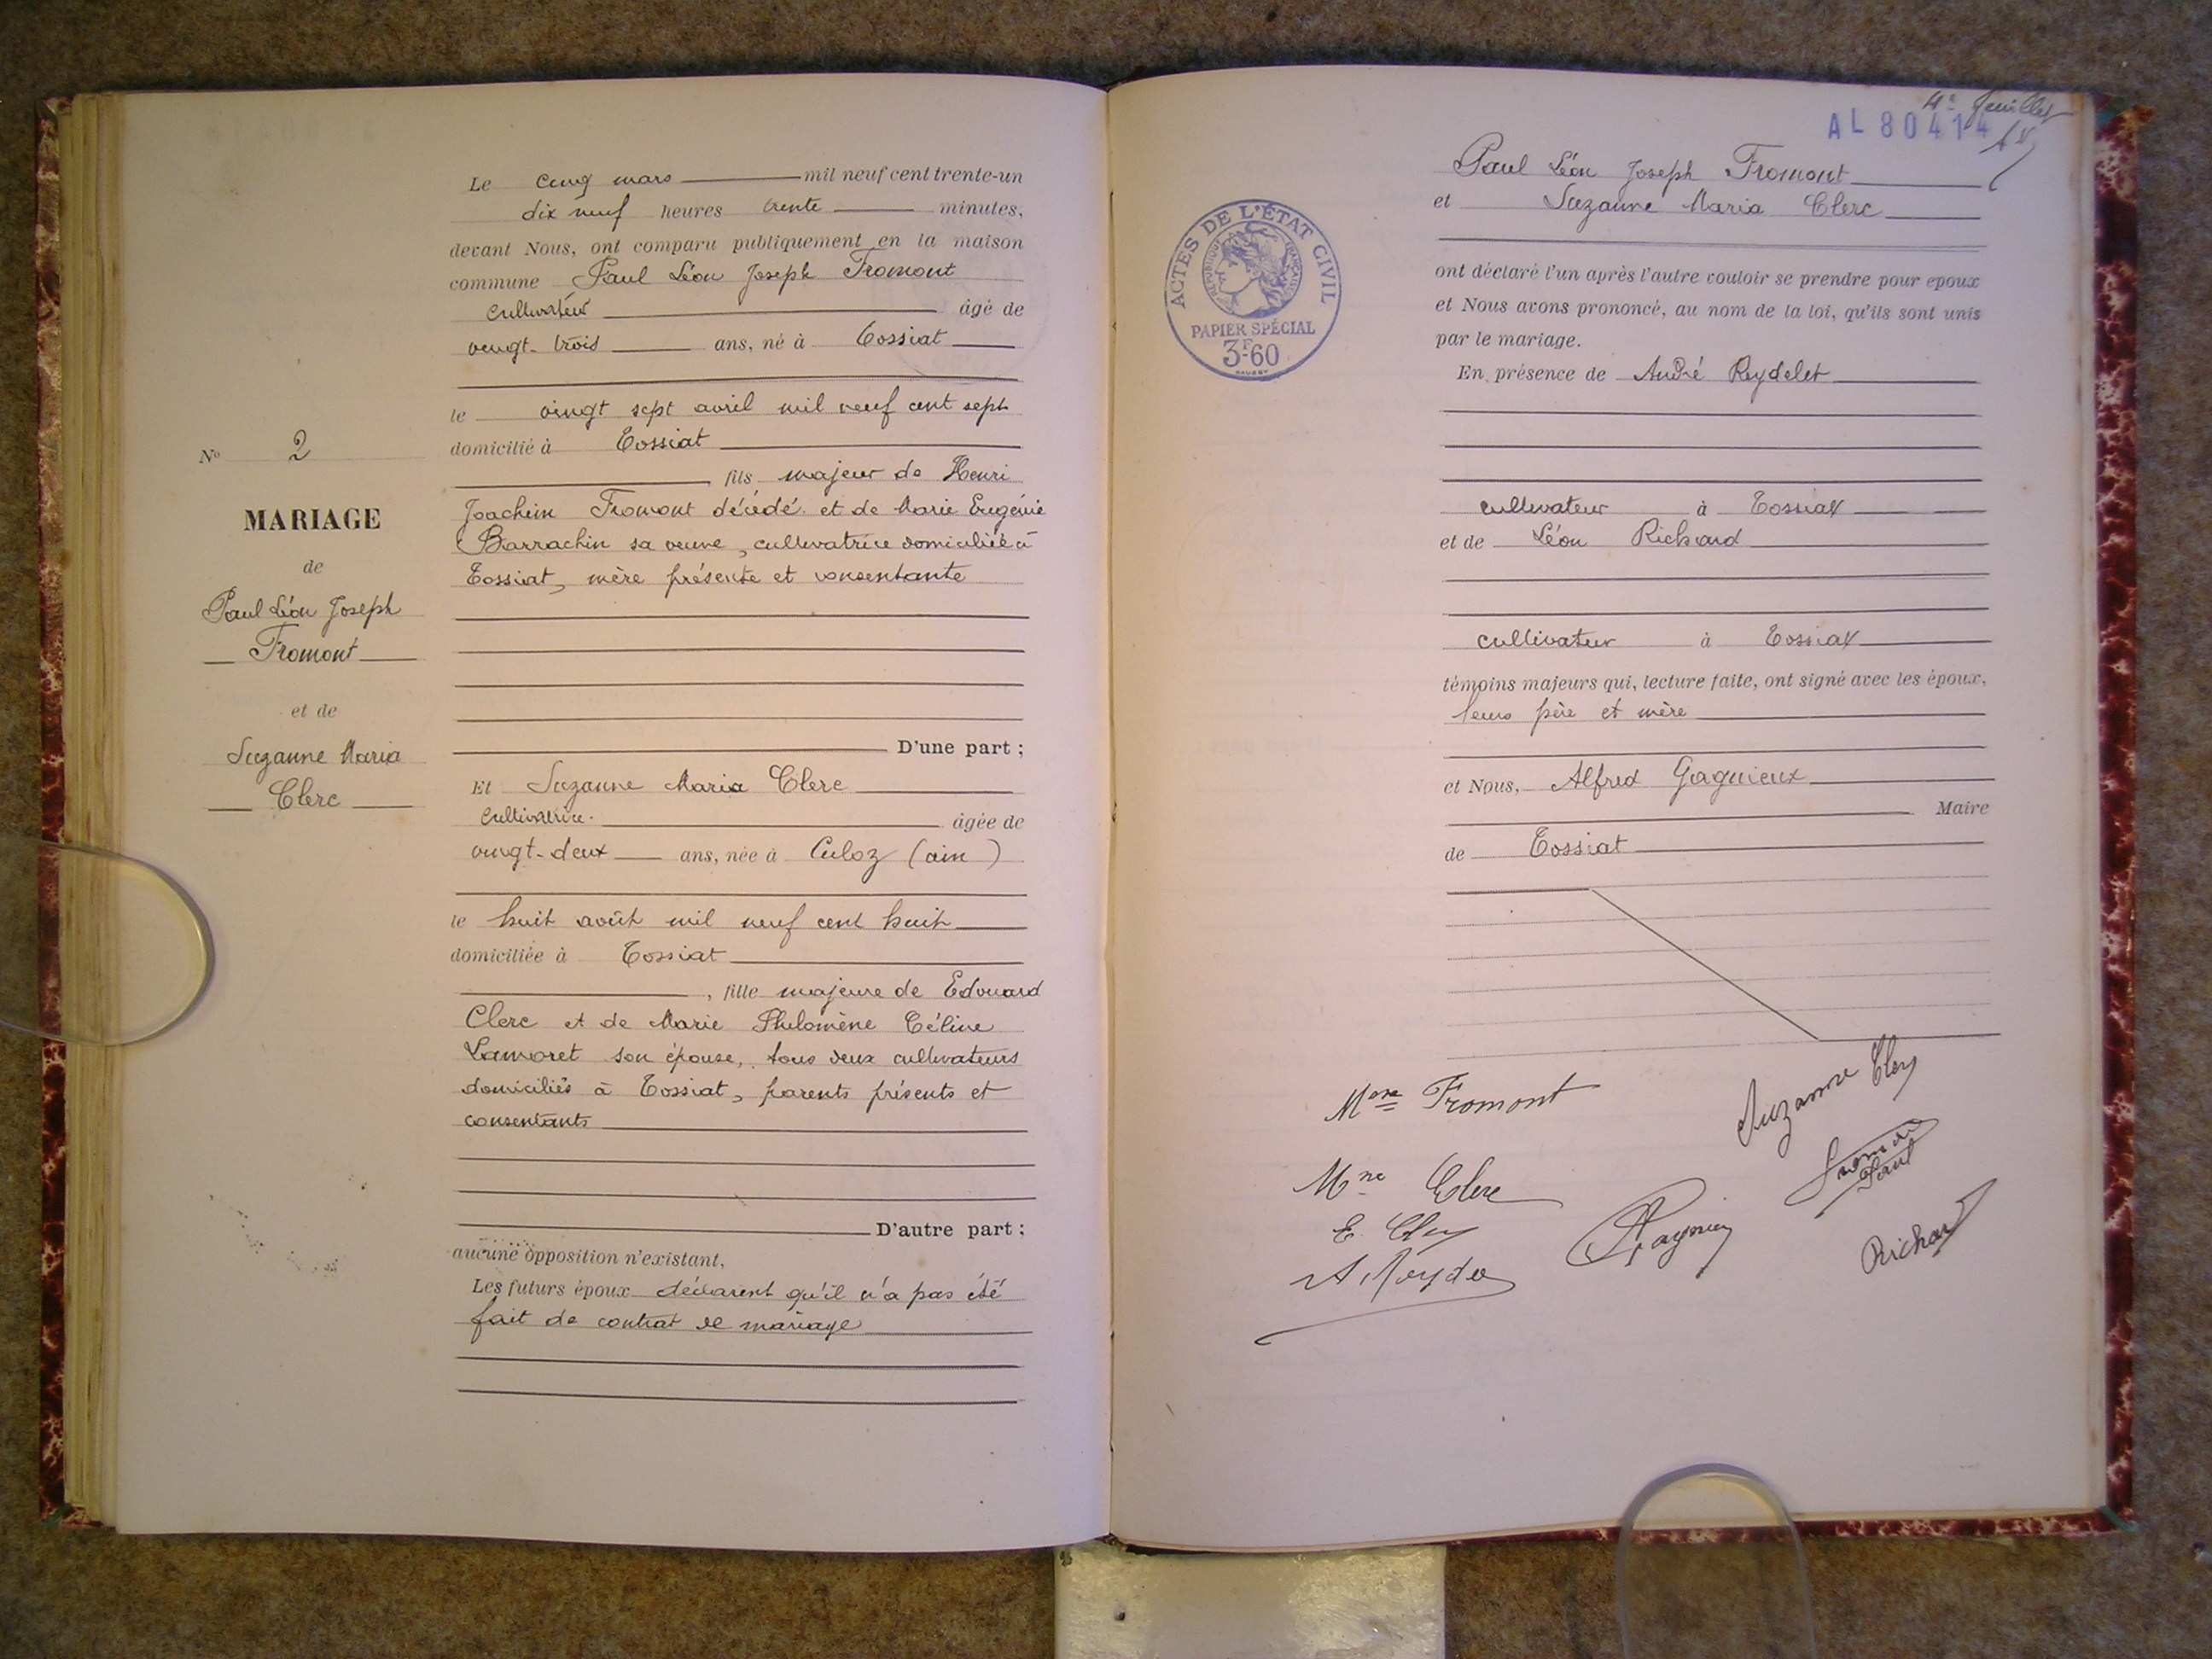 N° 2
MARIAGE
de
Paul Léon Joseph
Fromont
et de
Suzanne Maria
Clerc
Le cinq mars mil neuf cent trente-un
dix neuf heures trente minutes,
devant Nous, ont comparu publiquement en la maison
commune Paul Léon Joseph Fromont
cultivateur âgé de
vingt-trois ans, né à Tossiat
le vingt sept avril mil neuf cent sept
domicilié à Tossiat
fils majeur de Henri
Joachim Fromont décédé et de Marie Eugénie
Barrachin sa veuve, cultivatrice domiciliée à
Tossiat, mère présente et consentante
D'une part ;
Et Suzanne Maria Clerc
cultivatrice âgée de
vingt-deux ans, née à Culoz (ain)
le huit août mil neuf cent huit
domiciliée à Tossiat
, fille majeure de Edouard
Clerc et de Marie Philomène Céline
Lamoret son épouse, tous deux cultivateurs
domiciliés à Tossiat, parents présents et
consentants
D'autre part ;
aucune opposition n'existant,
Les futurs époux déclarent qu'il n'a pas été
fait de contrat de mariage
4e feuillet
AL 80414
ACTES DE L'ÉTAT CIVIL
RÉPUBLIQUE FRANÇAISE
PAPIER SPÉCIAL
3F60
Paul Léon Joseph Fromont
et Suzanne Maria Clerc
ont déclaré l'un après l'autre vouloir se prendre pour epoux
et Nous avons prononcé, au nom de la loi, qu'ils sont unis
par le mariage.
En présence de André Reydelet
cultivateur à Tossiat
et de Léon Richard
cultivateur à Tossiat
témoins majeurs qui, lecture faite, ont signé avec les époux,
leurs père et mère
et Nous, Alfred Gagnieux
Maire
de Tossiat
Mme Fromont
Suzanne Clerc
Fromont
Paul
Mme Clerc
E. Clerc
Richard